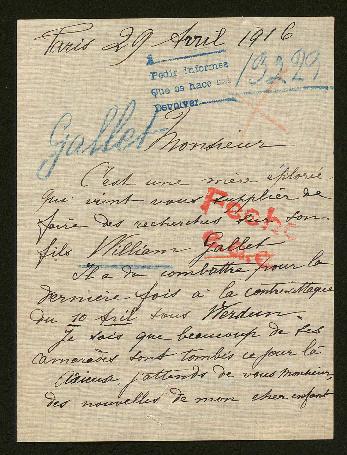 Paris 29 Avril 1916
A
Pedir informes
Que se hace
Devolver
13229
Gallet
Monsieur
C'est une mère éplorée
qui vient vous supplier de
faire des recherches sur son
fils William Gallet
Il a du combattre pour la
dernière fois à la contre-attaque
du 10 Avril sous Verdun.
Je sais que beaucoup de ses
camarades sont tombés ce jour là
j'attends de vous Monsieur
des nouvelles de mon cher enfant